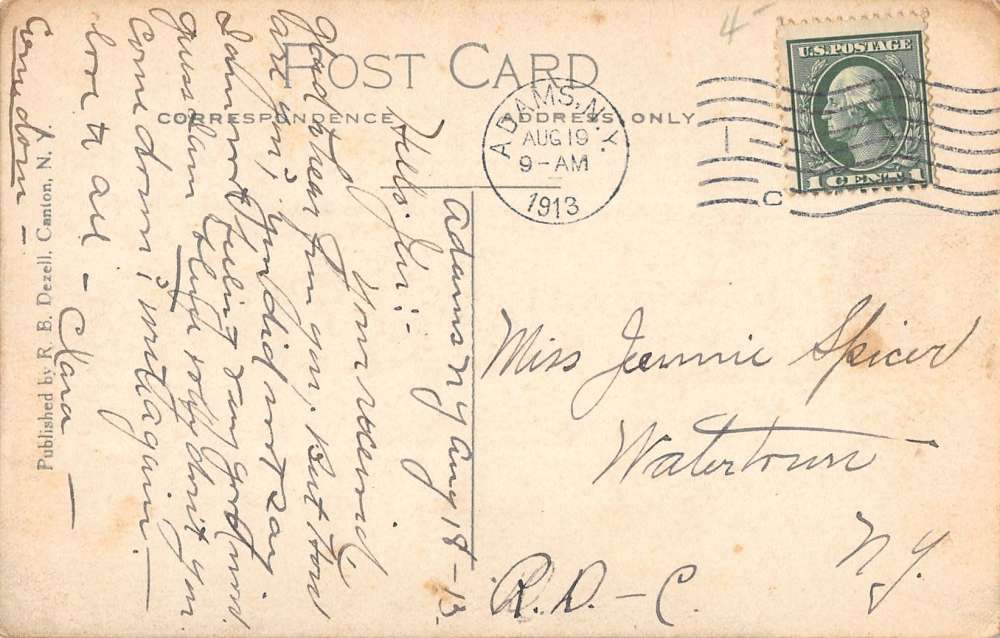 4-
POST CARD
CORRESPONDENCE
ADDRESS ONLY
ADAMS, N.Y.
AUG 19
9-AM
1913
U.S. POSTAGE
1 CENT 1
C
Adams N Y Aug 18-13.
Hello Jen:-
Your received,
glad to hear from you, but how
are you, you did not say
I am not feeling very good mis.
guess I am
Why don't you
come down, write again.
love to all - Clara
Come down -
Published by R. B. Dezell, Canton, N. Y.
Miss Jennie Spicer
Watertown
N.Y.
R.D. - C.